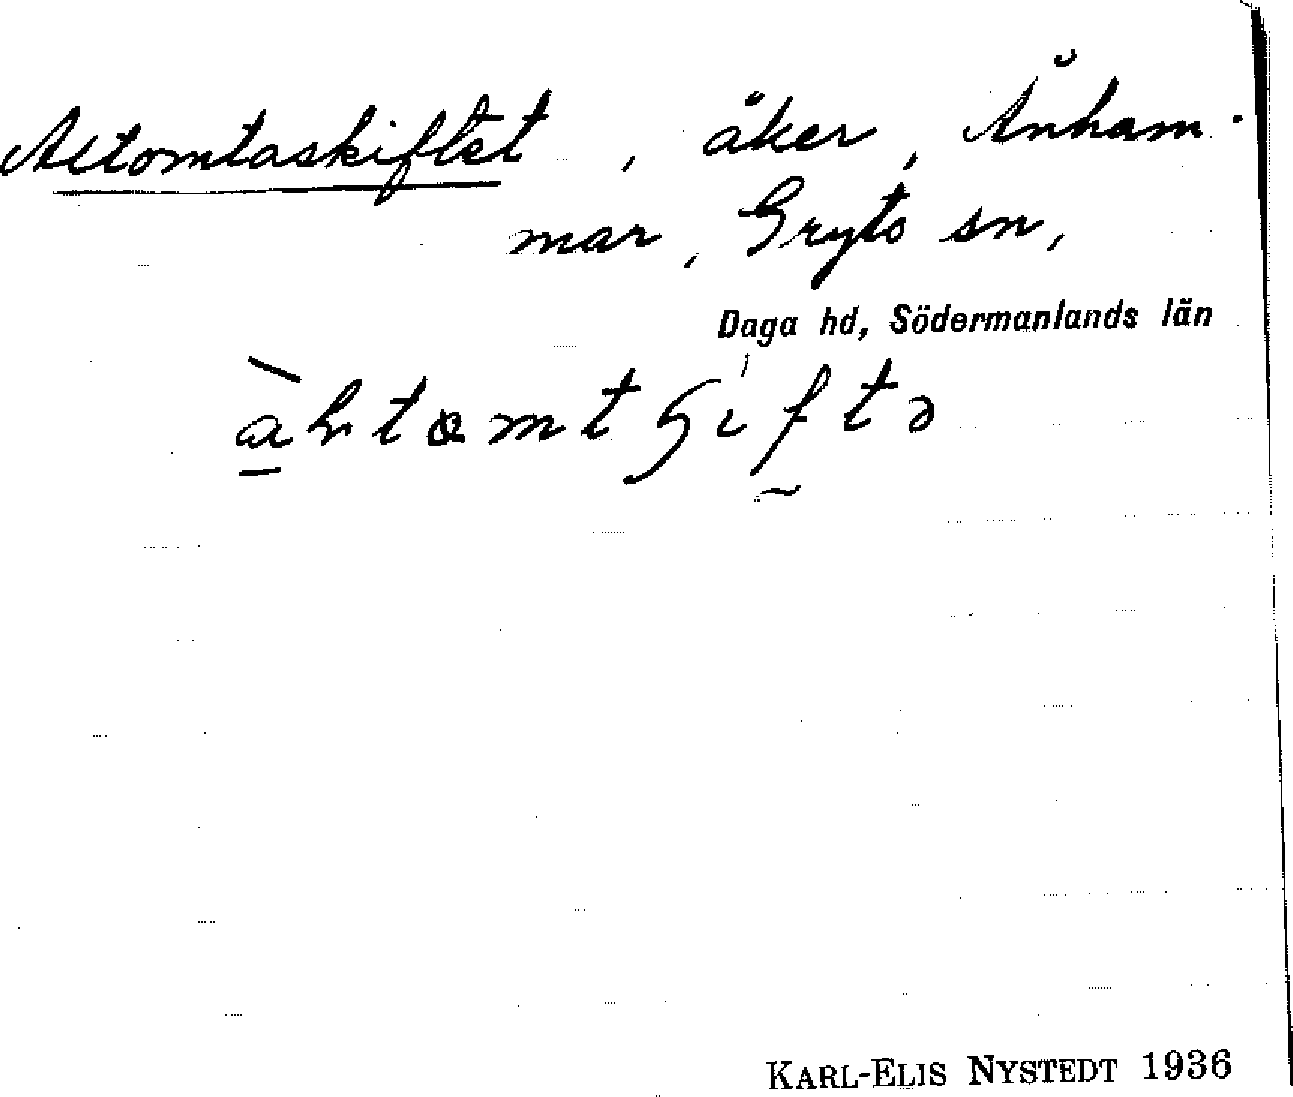 Altomtaskiftet, åker, Ånham-
mar, Gryts sn,
Daga hd, Södermanlands län
KARL-ELIS NYSTEDT 1936